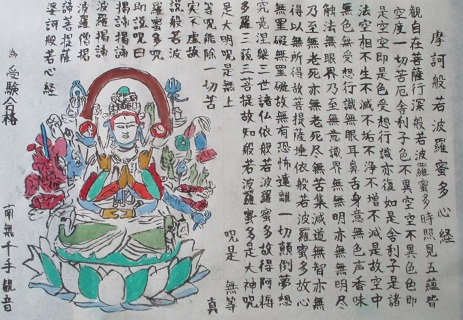 摩訶般若波羅蜜多心経
観自在菩薩行深般若波羅蜜多時照見五蘊皆
空度一切苦厄舎利子色不異空空不異色色即
是空空即是色受想行識亦復如是舎利子是諸
法空相不生不滅不垢不浄不増不減是故空中
無色無受想行識無眼耳鼻舌身意無色声香味
触法無眼界乃至無意識界無無明亦無無明尽
乃至無老死亦無老死尽無苦集滅道無智亦無
得以無所得故菩提薩埵依般若波羅蜜多故心
無罣礙無罣礙故無有恐怖遠離一切顛倒夢想
究竟涅槃三世諸仏依般若波羅蜜多故得阿耨
多羅三藐三菩提故知般若波羅蜜多是大神呪
是大明呪是無上 呪是 無等
等呪能除一切苦 真
実不虚故
説般若波
羅蜜多呪
即説呪曰
掲諦掲諦
波羅掲諦
波羅僧掲
諦菩提薩
婆訶般若心経
為 受験合格
南無千手観音